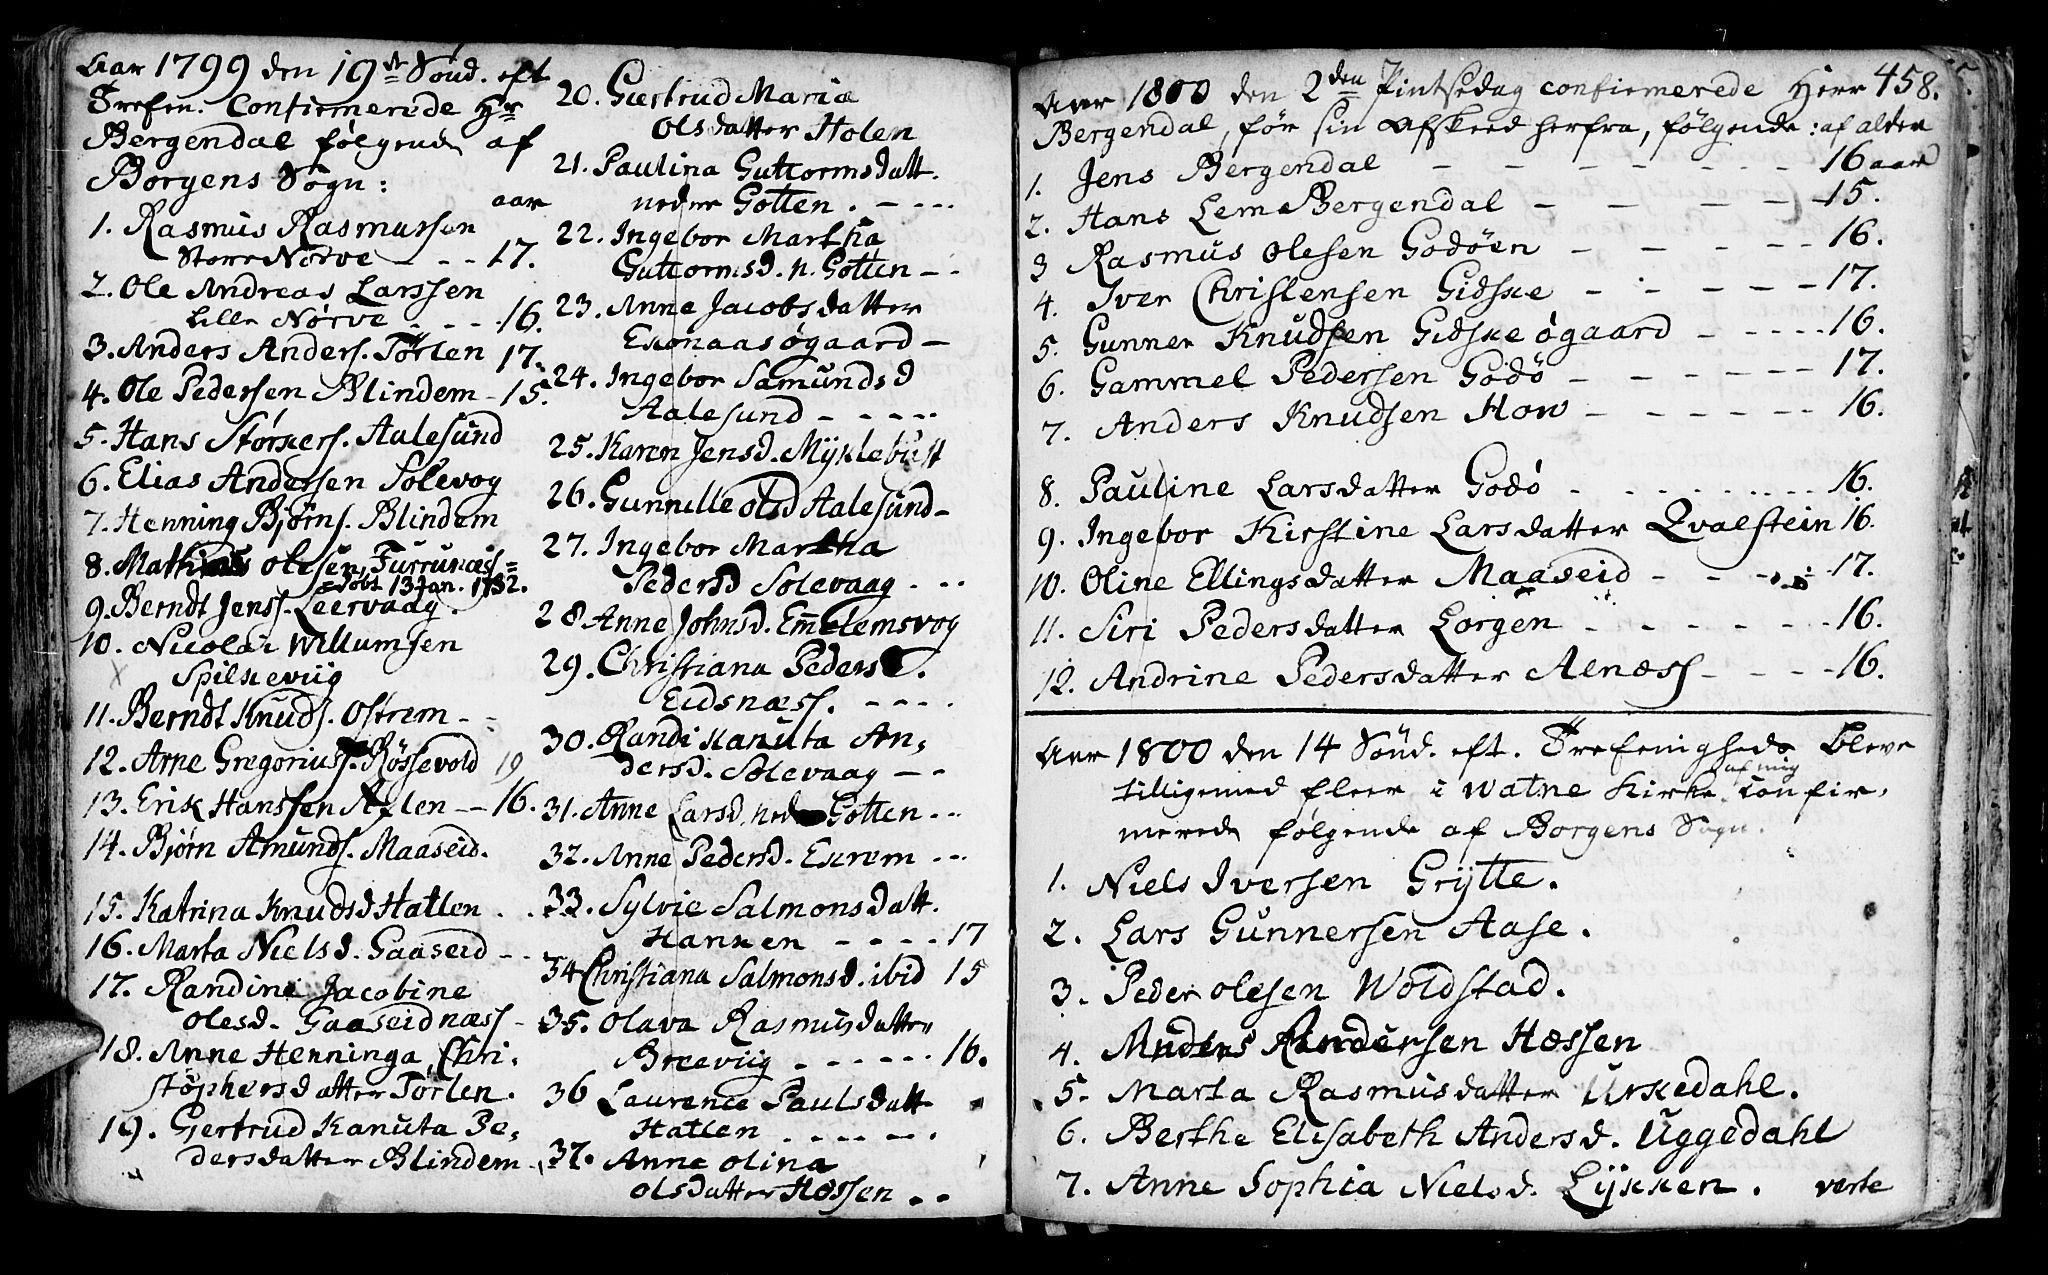 Aar 1799 den 19de Sønd. eft
Trefen. Confirmerede Hr
Bergendal følgende af
Borgens Sogn:
aar
1. Rasmus Rasmussen
Store Nørve - - - 17.
2. Ole Andreas Larssen
Lille Nørve - - - 16.
3. Anders Anders. Tørlen 17.
4. Ole Pedersen Blindem - 15.
5. Hans Størkers. Aalesund
6. Elias Andersen Solevog
7. Henning Bjørns. Blindem
8. Mathias Olesen Furrunæss=
døbt 13 Jan. 1782.
9. Berndt Jenss. Leervaag.
10. Nicolai Willumsen
Spilkeviig
11. Berndt Knuds. Østrem - -
12. Arne Gregoriuss. Røssevold 19
13. Erik Hanssen Aflen - - 16.
14. Bjørn Amunds. Maaseid.
15. Katrina Knudsd Hatlen . .
16. Marta Nielsd. Gaaseid - -
17. Randine Jacobine
Olesd. Gaaseidnæss -
18. Anne Henninga Chri-
stophersdatter Tørlen.
19. Gertrud Kanuta Pe-
dersdatter Blindem -
20. Giertrud Maria
Olsdatter Holen
21. Paulina Guttormsdatt.
nedre Gotten . - - - -
22. Ingebor Martha
Guttormsd. n. Gotten - -
23. Anne Jacobsdatter
Exonaasøgaard -
24. Ingebor Samundsd
Aalesund - - - - -
25. Karen Jensd. Myklebust
26. Gunnille Olsd Aalesund -
27. Ingebor Martha
Pedersd Solevaag . - -
28. Anne Johnsd. Emblemsvog
29. Christiana Peders d.
Eidsnæss. - - - -
30. Randi Kanuta An-
dersd. Solevaag - -
31. Anne Larsd. ned Gotten - -
32. Anne Pedersd. Exrem - - -
33. Sylvie Salmonsdatt.
Hanken - - - - 17
34 Christiana Salmonsd. ibid 15
35. Olava Rasmusdatter
Breeviig - - - - - - 16.
36 Laurence Paulsdatt
Hatlen - - - - - - .
37. Anne Olina
Olsdatter Hæssen - -
458.
Aar 1800 den 2den Pintsedag confirmerede Herr
Bergendal, før sin Afskeed herfra, følgende: af alder
1. Jens Bergendal - - - - - - - 16 aar
2. Hans Lem Bergendal - - - - - 15.
3 Rasmus Olesen Godøen - - - - - 16.
4. Iver Christensen Gidske - - - - - 17.
5. Gunner Knudsen Gidskeøgaard - - - - - 16.
6. Gammel Pedersen Godø - - - - - - 17.
7. Anders Knudsen How - - - - - - 16.
8. Pauline Larsdatter Godø - - - - - - - - 16.
9. Ingebor Kirstine Larsdatter Qvalstein 16.
10. Oline Ellingsdatter Maaseid - - - - - 17.
11. Siri Pedersdatter Lorgen - - - - - - 16.
12. Andrine Pedersdatter Alnæss - - - - 16.
Aar 1800 den 14 Sønd. eft. Trefenigheds bleve
tilligemed fleer i Watne Kirke af mig confir-
merede følgende af Borgens Sogn.
1. Niels Iversen Grytte.
2. Lars Gunnersen Aase.
3. Peder Olesen Woldstad.
4. Anders Andersen Hæssen
5. Marta Rasmusdatter Urkedahl.
6. Berthe Elisabeth Andersd. Uggedahl
7. Anne Sophia Nielsd. Lykken . verte